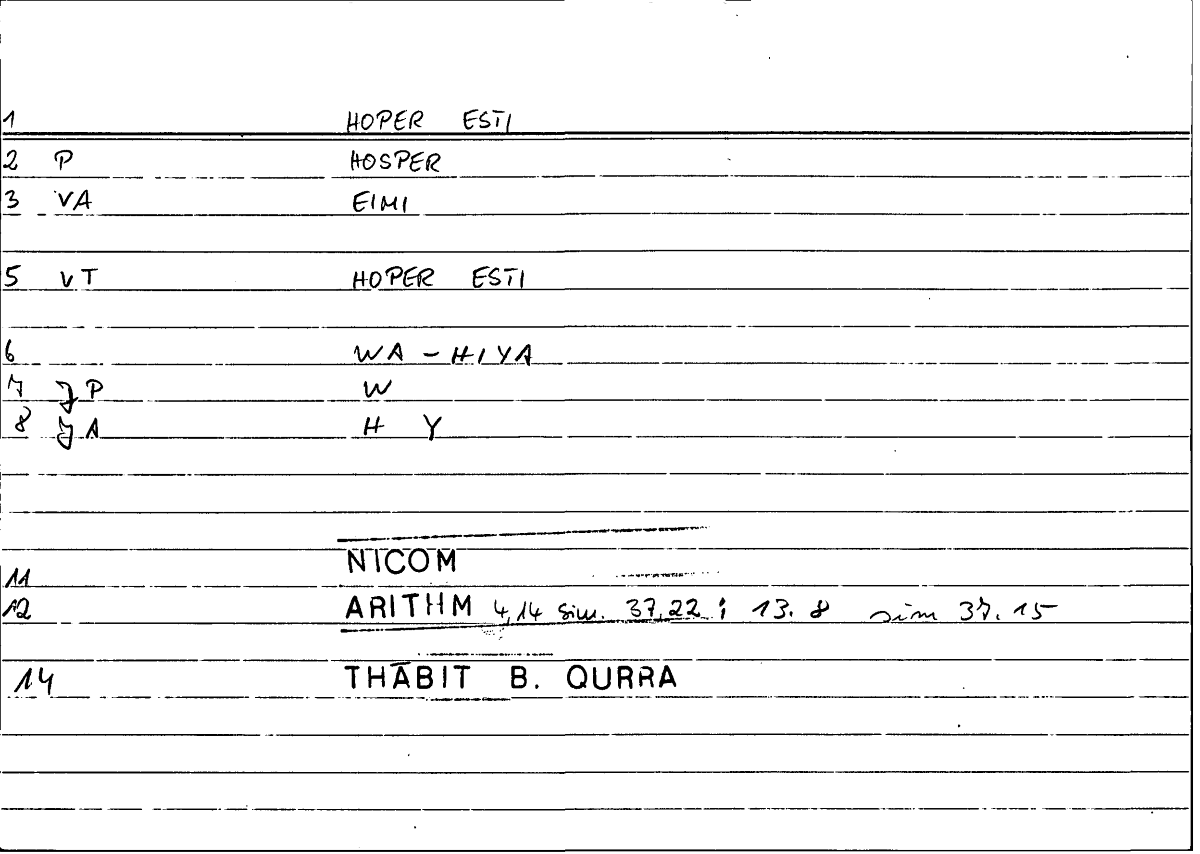 1 HOPER ESTI
2 P HOSPER
3 VA EIMI
5 VT HOPER ESTI
6 WA - HIYA
7 J P W
8 J A H Y
11 NICOM
12 ARITHM 4,14 sim. 37,22 ; 13. 8 sim 37. 15
14 THĀBIT B. QURRA